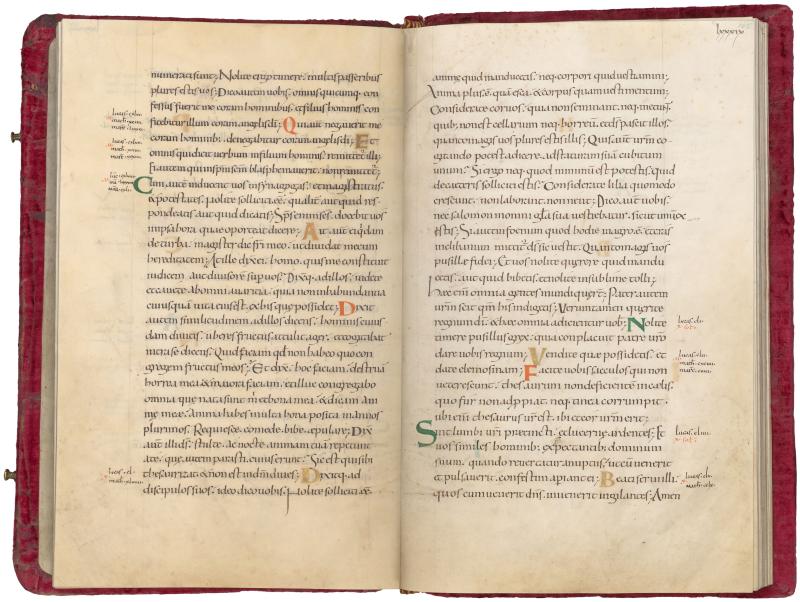 numerati sunt; Nolite ergo timere. multis passeribus
plures estis vos; Dico autem vobis. omnis quicumq; con
fessus fuerit me coram hominibus. et filius hominis con
fitebitur illum coram angelis di; Qui aut negaverit me
coram hominib; denegabitur coram angelis di; Et
omnis qui dicit verbum in filium hominis. remittet illi
Cum aut inducent vos in synagogas. et magistratus
et potestates. nolite solliciti ee. qualit aut quid res
pondeatis. aut quid dicatis; Sps em scs. docebit vos
in ipsa hora quae oporteat dicere; Ait aut ei qdam
de turba. magister dic fri meo. ut dividat mecum
hereditatem; At ille dixit. homo. quis me constituit
iudicem aut divisore sup vos; Dixitq; ad illos. videte
et cavete ab omni avaritia. quia non in habundantia
cuiusquã vita eius est. ex his que possidet; Dixit
autem similitudinem ad illos dicens. hominis cuius
dam divitis. uberes fructus attulit ager. et cogitabat
intra se dicens; Quid faciam qd non habeo quo con
gregem fructus meos; Et dix. hoc faciam. destruã
horrea mea & maiora faciam. et illuc congregabo
omnia que nata sunt m & bona mea. & dicam ani
me mee. Anima habes multa bona posita in annos
plurimos. Requiesce. comede. bibe. epulare; Dix
aut illi ds. stulte. ac nocte animam tuã repetunt
a te. que autem parasti. cuius erunt; Sic est qui sibi
thesaurizat. & non est in dm dives; Dixitq; ad
discipulos suos. ideo dico vobis; Nolite solliciti ee
lxxxix
anime quid manducetis. neq; corpori quid vestiamini;
Anima plus e. quã esca. & corpus quam vestimentum;
Considerate corvos. quia non seminant. neq; metunt.
quib; non est cellarium neq; horreũ. et ds pascit illos.
quanto magis vos plures estis illis; Quis aut vrm co
gitando potest adicere. ad staturam suã cubitum
unum; Si ergo neq; quod minimũ est potestis. quid
de ceteris solliciti estis; Considerate lilia quomodo
crescunt. non laborant. non nent; Dico aut vobis.
nec salomon in omni gla sua vestiebatur. sicut unũ ex
istis; Si autem foenum quod hodie in agro e. & cras
in clibanum mittit. ds sic vestit. Quanto magis vos
pusille fidei; Et vos nolite querere quid mandu
cetis. aut quid bibatis. et nolite in sublime tolli;
Haec em omnia gentes mundi querũt; Pater autem
vrm scit qm his indigetis; Verumtamen querite
regnum di. et haec omnia adicientur vob; Nolite
timere pusillus grex. quia complacuit patri vro
dare vobis regnum; Vendite quae possidetis. et
date elemosinam; Facite vobis sacculos qui non
veterescunt. thesaurum non deficientem in celis.
quo fur non adppiat. neq; tinea corrumpit.
ubi em thesaurus vr est. ibi et cor vrm erit;
Sint lumbi vri precincti. et lucerne ardentes; Et
vos similes hominib; expectantib; dominum
suum. quando revertatur a nuptiis. ut cu venerit
et pulsaverit. confestim aperiant ei; Beati servi illi.
quos cum venerit dns. invenerit vigilantes; Amen